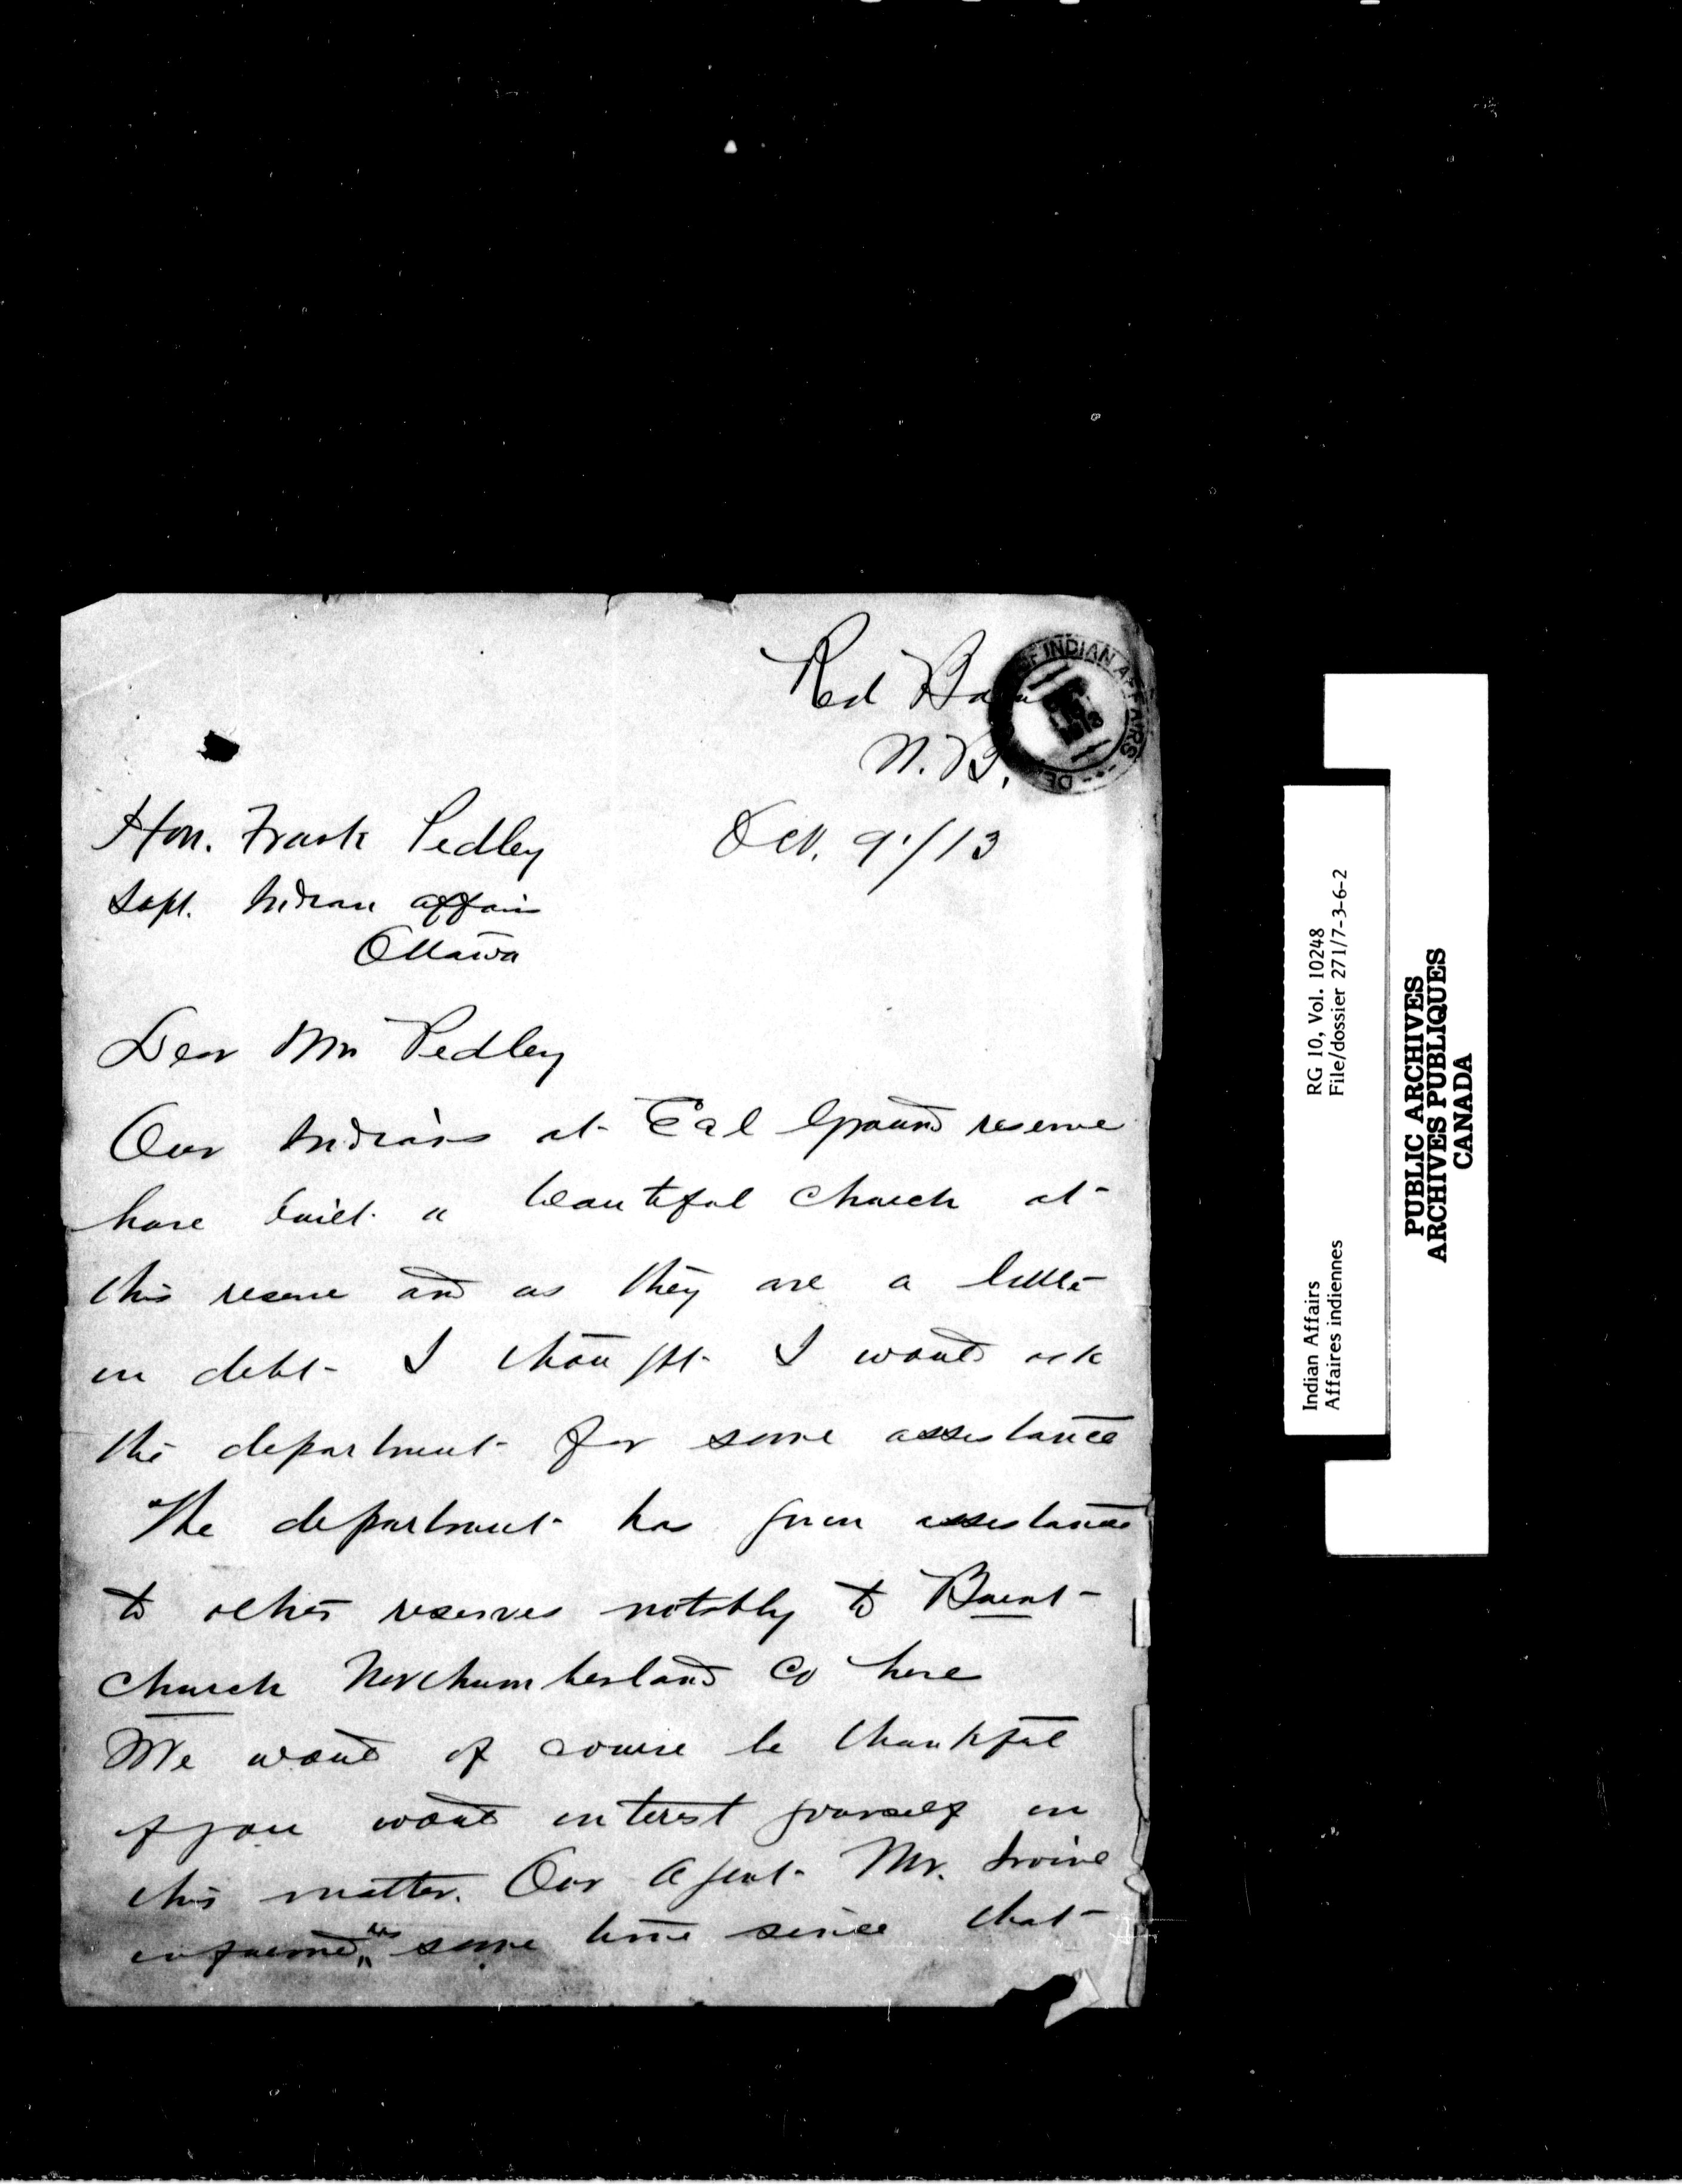 Red Bank
N.B.
OF INDIAN AFFAIRS
1913
Hon. Frank Pedley
Oct. 9'/13
Supt. Indian affairs
Ottawa
Dear Mr Pedley
Our Indians at Eel Ground reserve
have built a beautiful church at
this reserve and as they are a little
in debt I thought I would ask
the department for some assistance
The department has given assistance
to other reserves notably to Burnt
Church Northumberland Co here
We would of course be thankful
if you would interest yourself in
this matter. Our Agent Mr. Irvine
informed us some time since that
Indian Affairs RG 10, Vol. 10248
Affaires indiennes File/dossier 271/7-3-6-2
PUBLIC ARCHIVES
ARCHIVES PUBLIQUES
CANADA